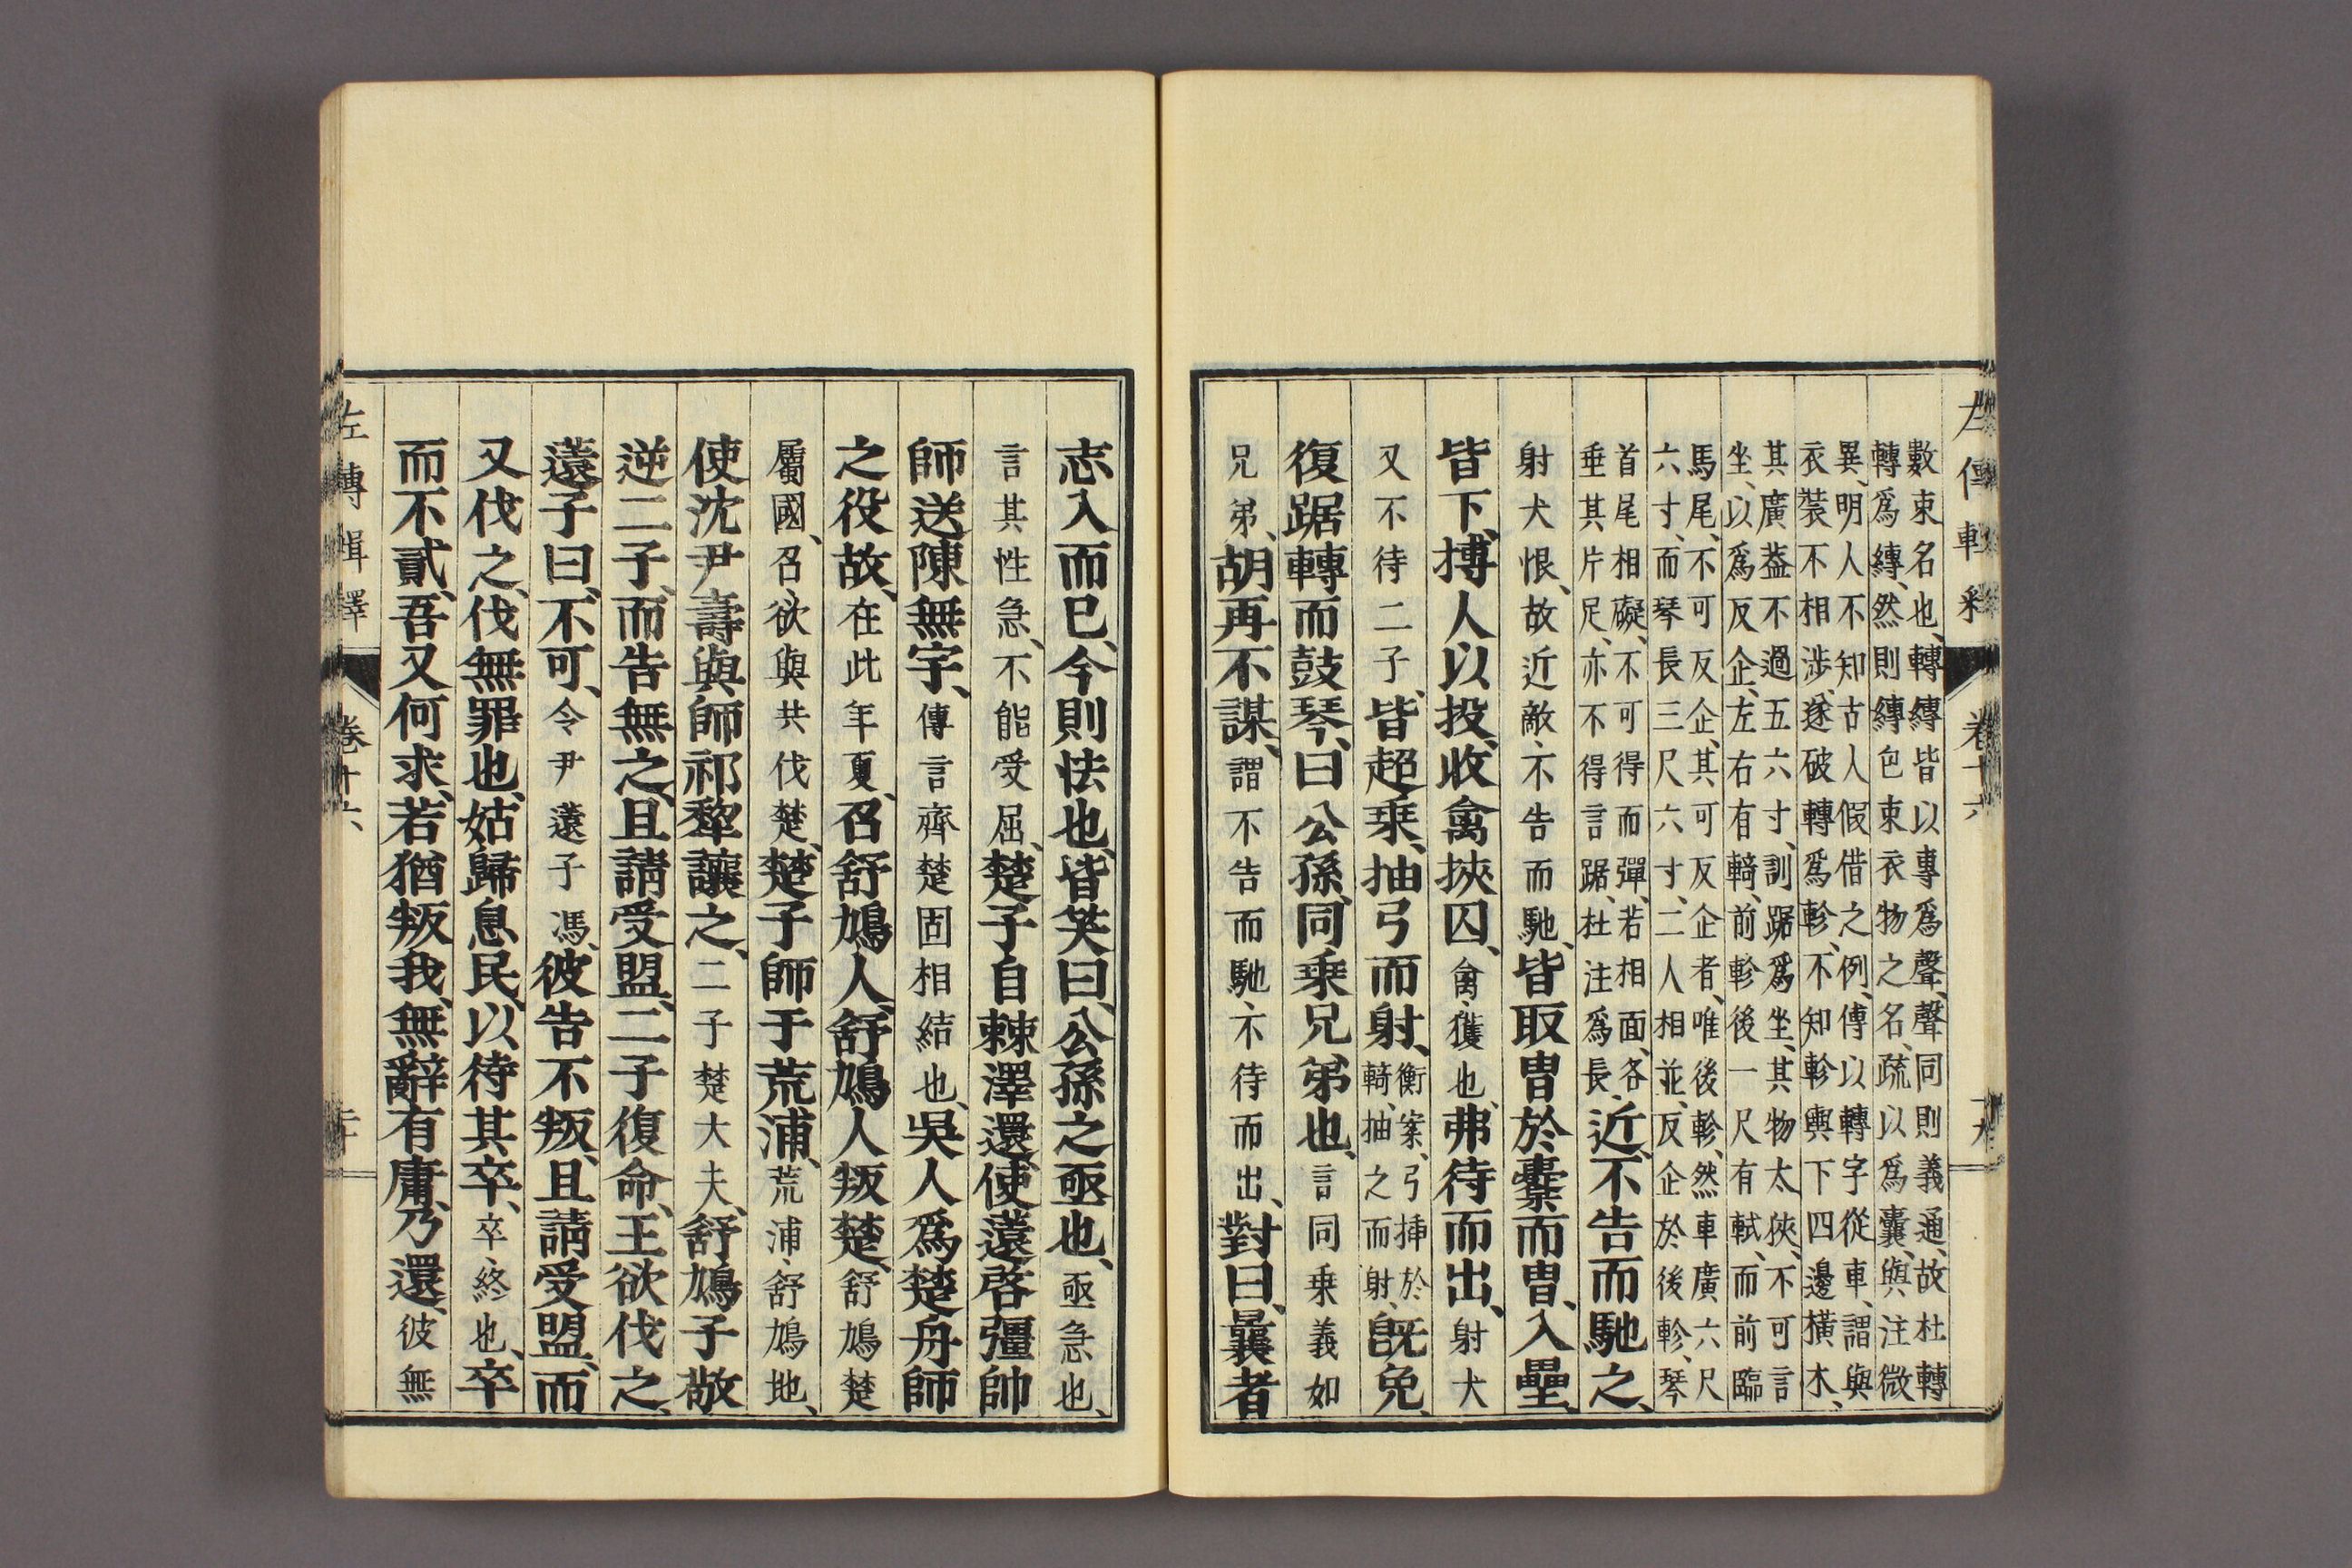 左傳輯釋 卷十六 十九
數束名也、轉縳皆以專爲聲、聲同則義通、故杜轉
轉爲縳、然則縳包束衣物之名、疏以爲囊、與注微
異、明人不知古人假借之例、傳以轉字從車、謂與
衣裝不相涉、遂破轉爲軫、不知軫輿下四邊橫木、
其廣蓋不過五六寸、訓踞爲坐、其物太狹、不可言
坐、以爲反企、左右有輢、前軫後一尺有軾、而前臨
馬尾、不可反企、其可反企者、唯後軫、然車廣六尺
六寸、而琴長三尺六寸、二人相並、反企於後軫、琴
首尾相礙、不可得而彈、若相面、各
垂其片足、亦不得言踞、杜注爲長、近、不告而馳之、
射犬恨、故近敵、不告而馳、皆取冑於櫜而冑、入壘、
皆下、搏人以投、收禽挾囚、禽、獲也、弗待而出、射犬
又不待二子、皆超乘、抽弓而射、衡案、弓挿於
輢、抽之而射、旣免、
復踞轉而鼓琴、曰、公孫、同乘兄弟也、言同乘義如
兄弟、胡再不謀、謂不告而馳、不待而出、對曰、曩者
志入而已、今則怯也、皆笑曰、公孫之亟也、亟急也、
言其性急、不能受屈、楚子自棘澤還、使薳啓彊帥
師送陳無宇、傳言齊楚固相結也、吳人爲楚舟師
之役故、在此年夏、召舒鳩人、舒鳩人叛楚、舒鳩楚
屬國、召欲與共伐楚、楚子師于荒浦、荒浦、舒鳩地、
使沈尹壽與師祁犂讓之、二子楚大夫、舒鳩子敬
逆二子、而告無之、且請受盟、二子復命、王欲伐之、
薳子曰、不可、令尹薳子馮、彼告不叛、且請受盟、而
又伐之、伐無罪也、姑歸息民、以待其卒、卒、終也、卒
而不貳、吾又何求、若猶叛我、無辭有庸、乃還、彼無
左傳輯釋 卷十六 二十